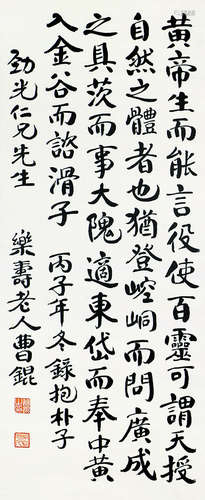 黄帝生而能言役使百靈可謂天授
自然之體者也猶登崆峒而問廣成
之具茨而事大隗適東岱而奉中黄
入金谷而諮滑子 丙子年冬錄抱朴子
勁光仁兄先生 樂壽老人曹錕